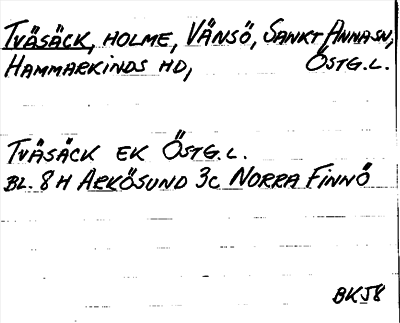 TVÄSÄCK, HOLME, VÄNSÖ, SANKT ANNA SN,
HAMMARKINDS HD, ÖSTG.L.
TVÄSÄCK EK ÖSTG.L.
BL. 8 H ARKÖSUND 3c NORRA FINNÖ
BKJ8